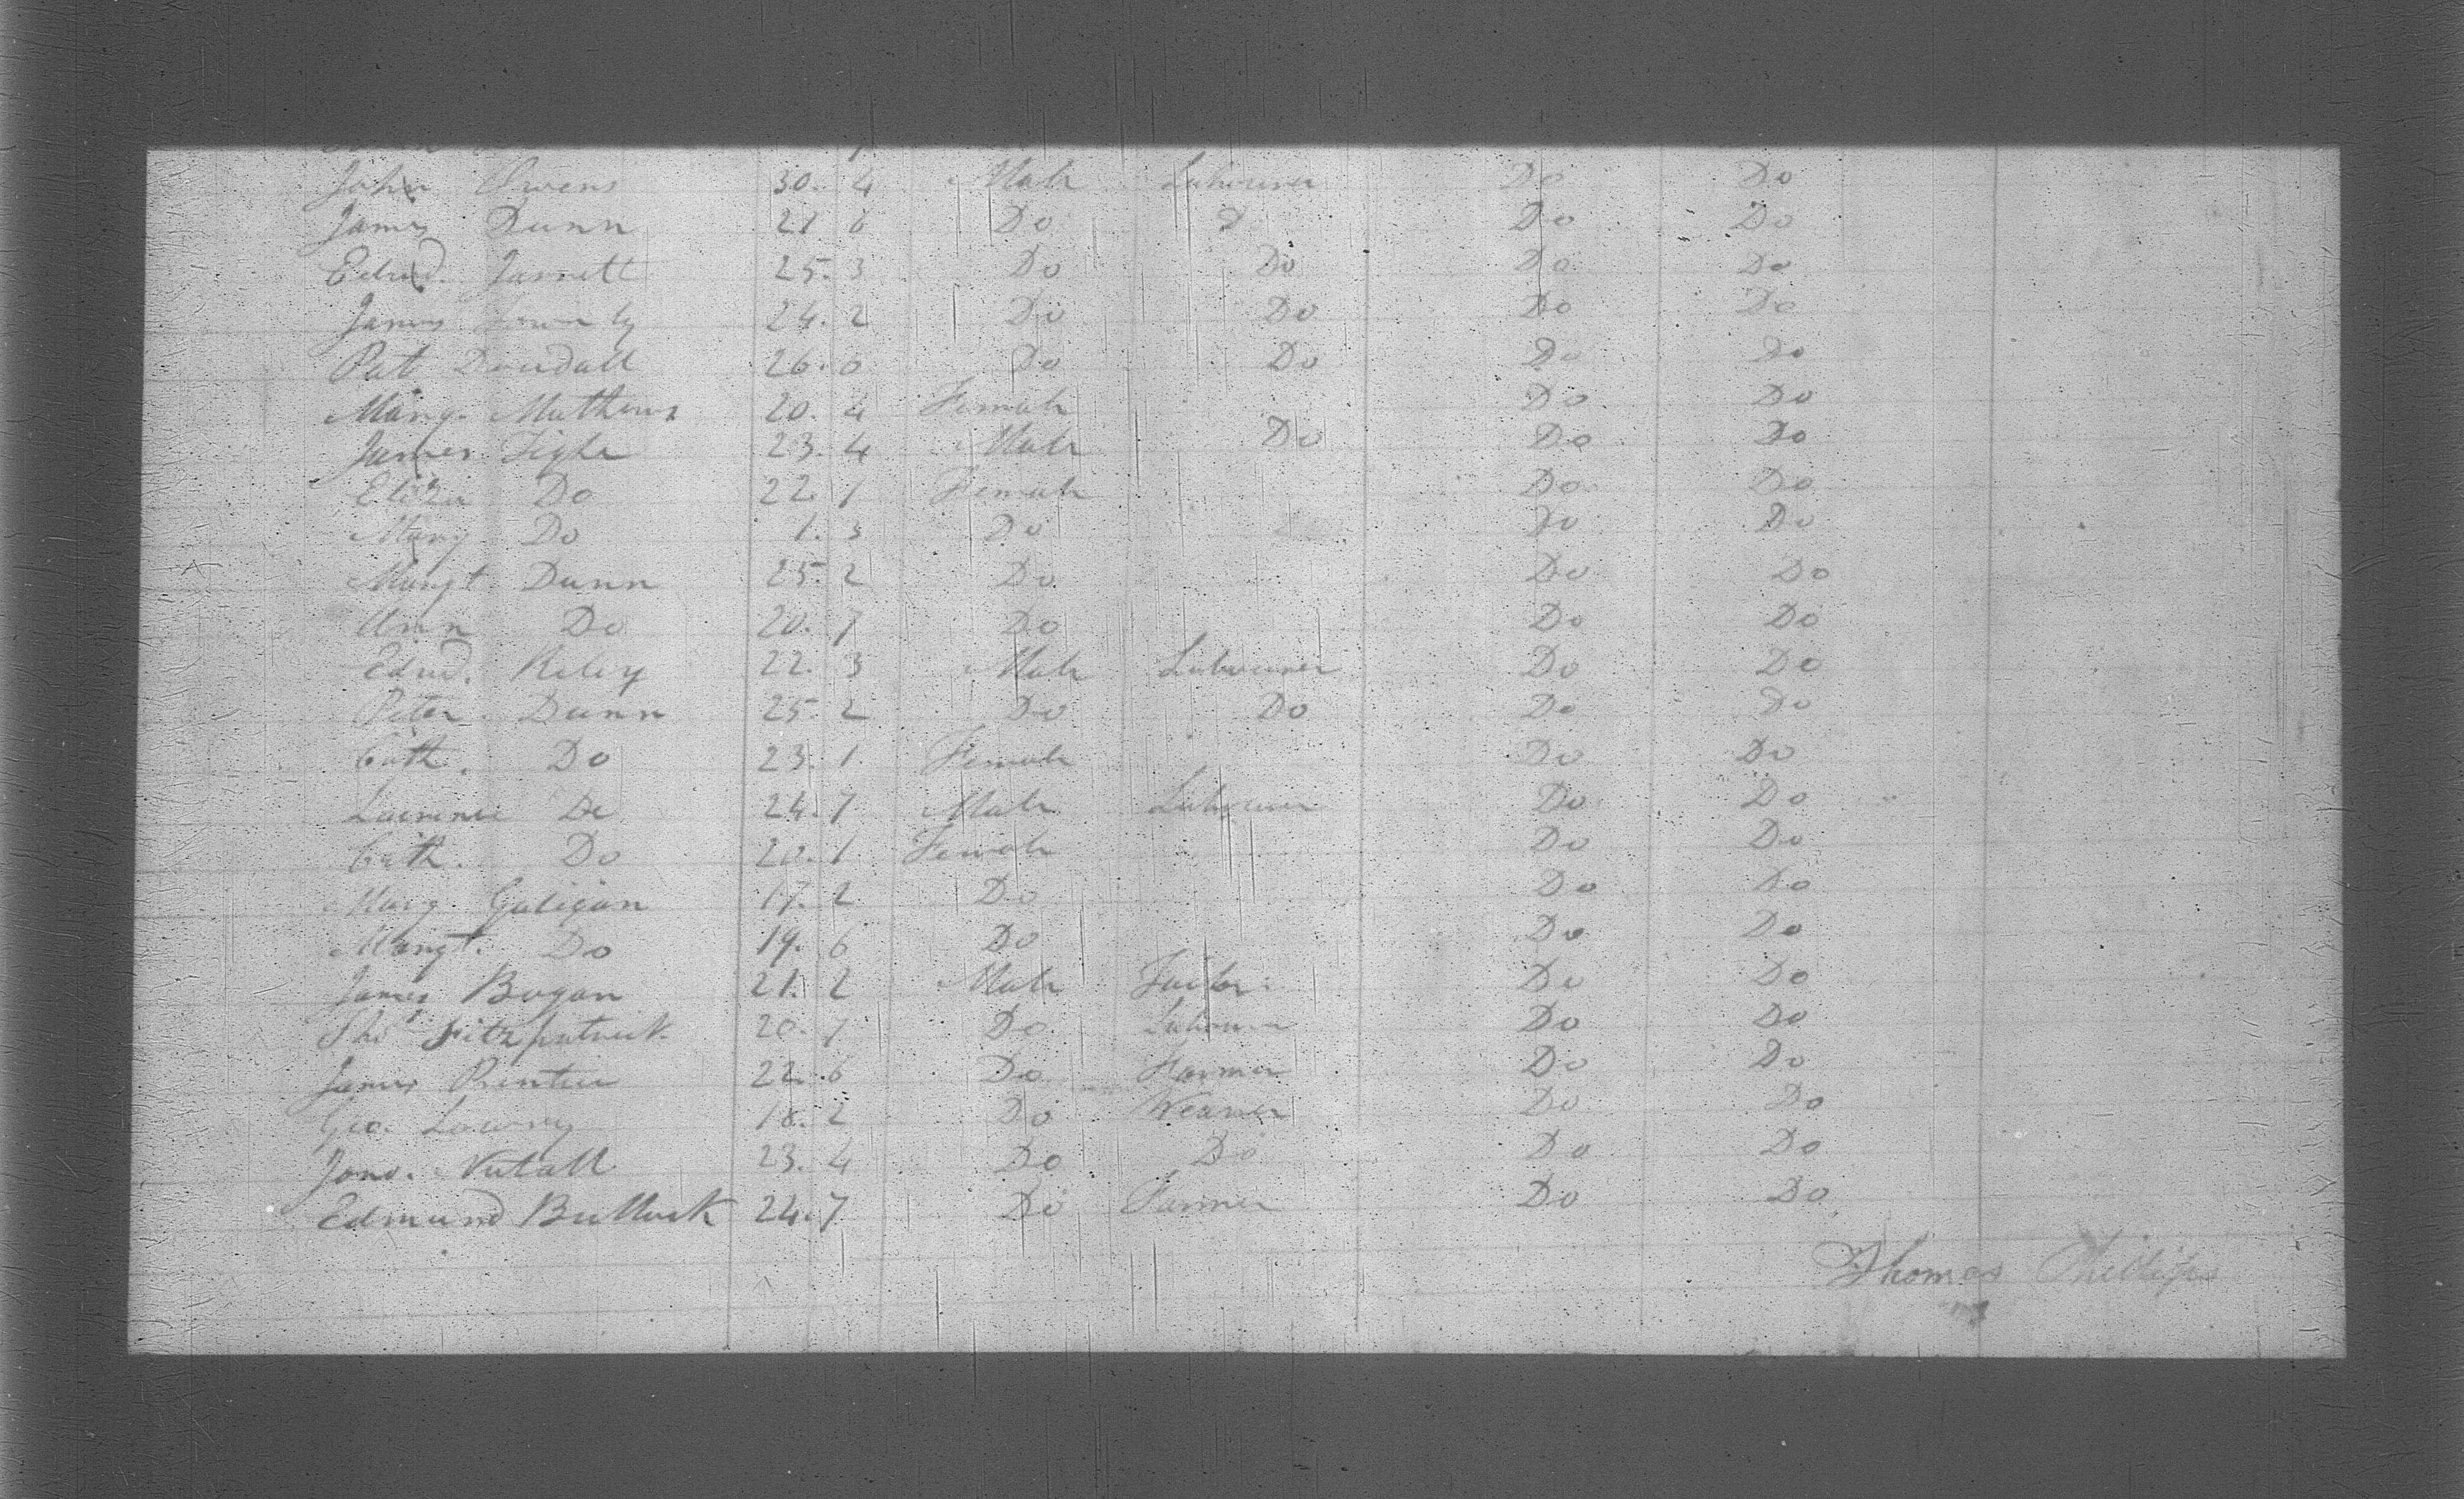 John Owens 30. 4 Male Labourer Do Do
James Dunn 21 6 Do Do Do Do
Edwd. Jarrett 25. 3 Do Do Do Do
James 24. 2 Do Do Do Do
Pat Doudall 26. 6 Do Do Do Do
Mary Mathews 20. 4 Female Do Do
James Tighe 23. 4 Male Do Do Do
Eliza Do 22. 1 Female Do Do
Mary Do 1. 3 Do Do Do
Margt Dunn 25. 2 Do Do Do
Ann Do 20. 7 Do Do Do
Edwd. Reley 22. 3 Male Labourer Do Do
Peter Dunn 25. 2 Do Do Do Do
Cath. Do 23. 1 Female Do Do
Do 24. 7 Male Labourer Do Do
Cath. Do 20. 1 Female Do Do
Mary Galigan 17. 2 Do Do Do
Margt. Do 19. 6 Do Do Do
James Bogan 21. 2 Male Do Do
Thos Fitzpatrick 20. 7 Do Labourer Do Do
James 22. 6 Do Farmer Do Do
Geo. Lowry 18. 2 Do Weaver Do Do
Jono. Nutall 23. 4 Do Do Do Do
Edmund Bullock 24. 7 Do Farmer Do Do
Thomas Phillips